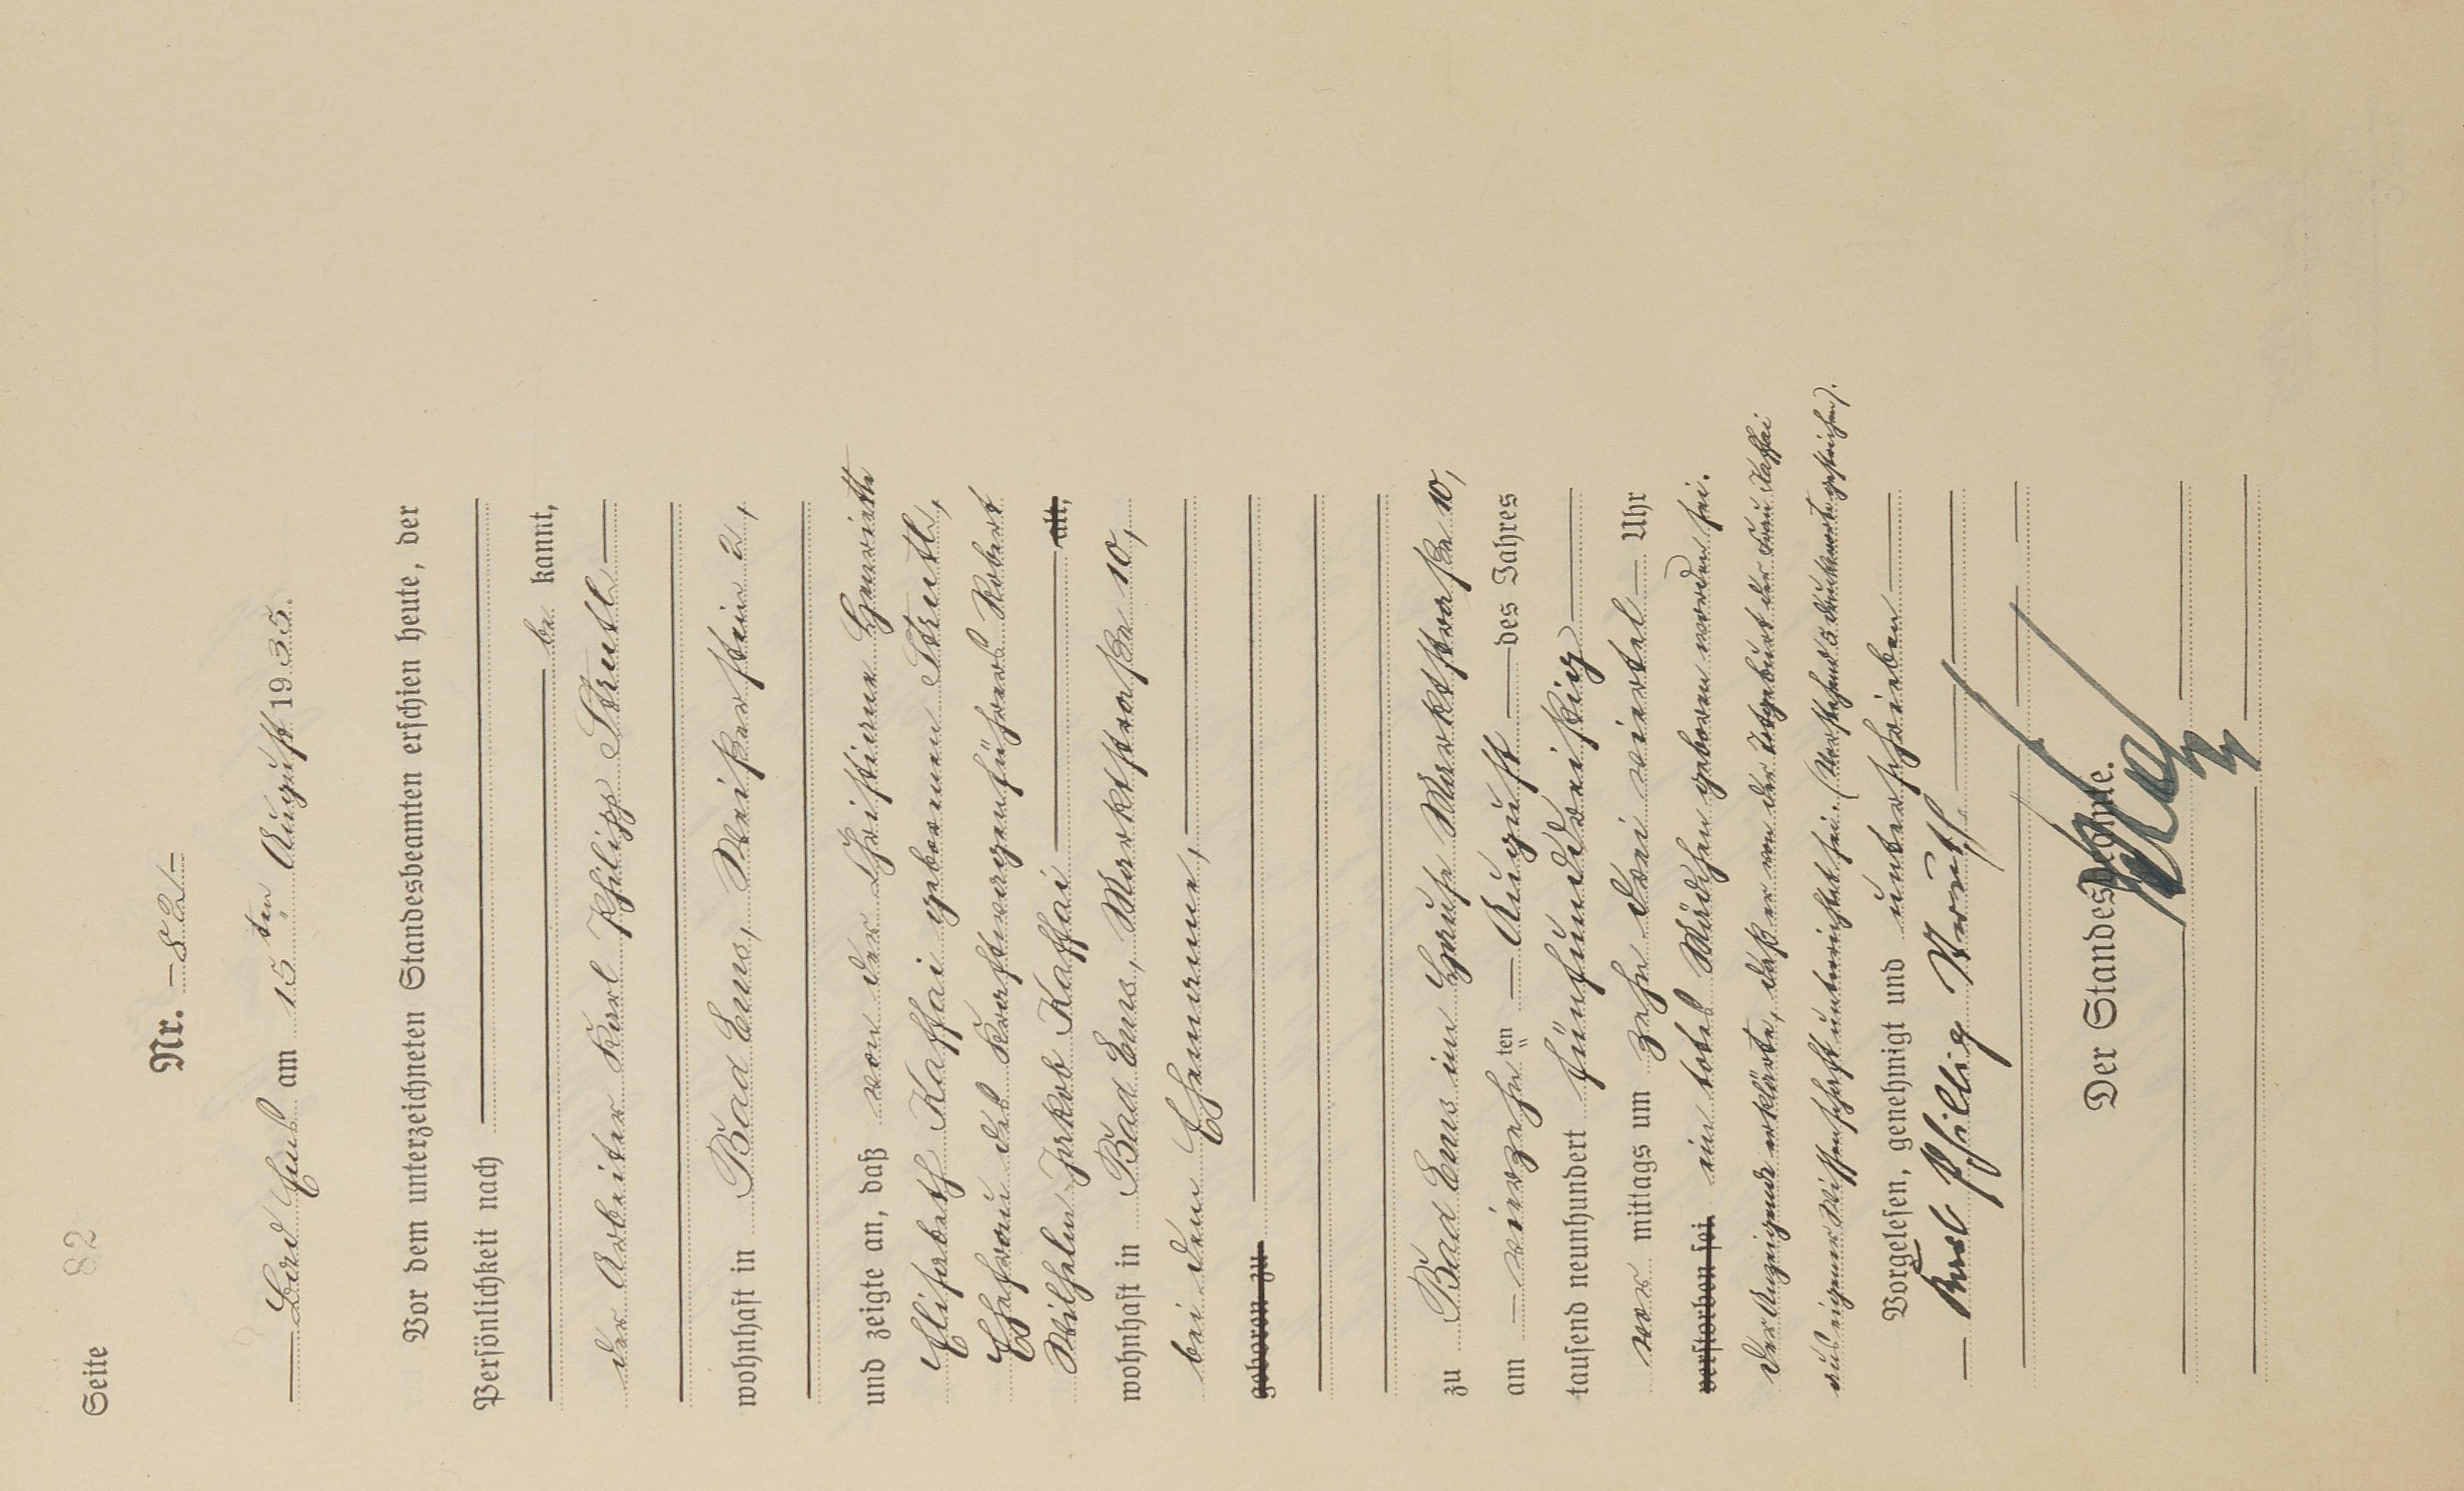 Seite 82
Nr. 82
Bad Ems am 15ten August 1935.
Vor dem unterzeichneten Standesbeamten erschien heute, der
Persönlichkeit nach
be kannt,
der Arbeiter Karl Philipp
wohnhaft in Bad Ems, Weißerstein 2,
und zeigte an, daß von der Christiane Henriette
Elisabeth Kaffai geborenen
Ehefrau des Kraftwagenführers Robert
Wilhelm Jakob Kaffai alt,
wohnhaft in Bad Ems, Marktstraße 10,
bei dem Ehemanne,
geboren zu
zu Bad Ems im Hause Marktstraße 10,
am vierzehnten August des Jahres
tausend neunhundert fünfunddreißig
vor mittags um zehn drei viertel Uhr
verstorben sei. ein totes Mädchen geboren worden sei.
Der Anzeigende erklärte, daß er von der Totgeburt der Frau Kaffai
aus eigener Wissenschaft unterrichtet sei. (Vorstehend 5 Druckworte gestrichen).
Vorgelesen, genehmigt und unterschrieben
Karl Philipp
Der Standesbeamte.